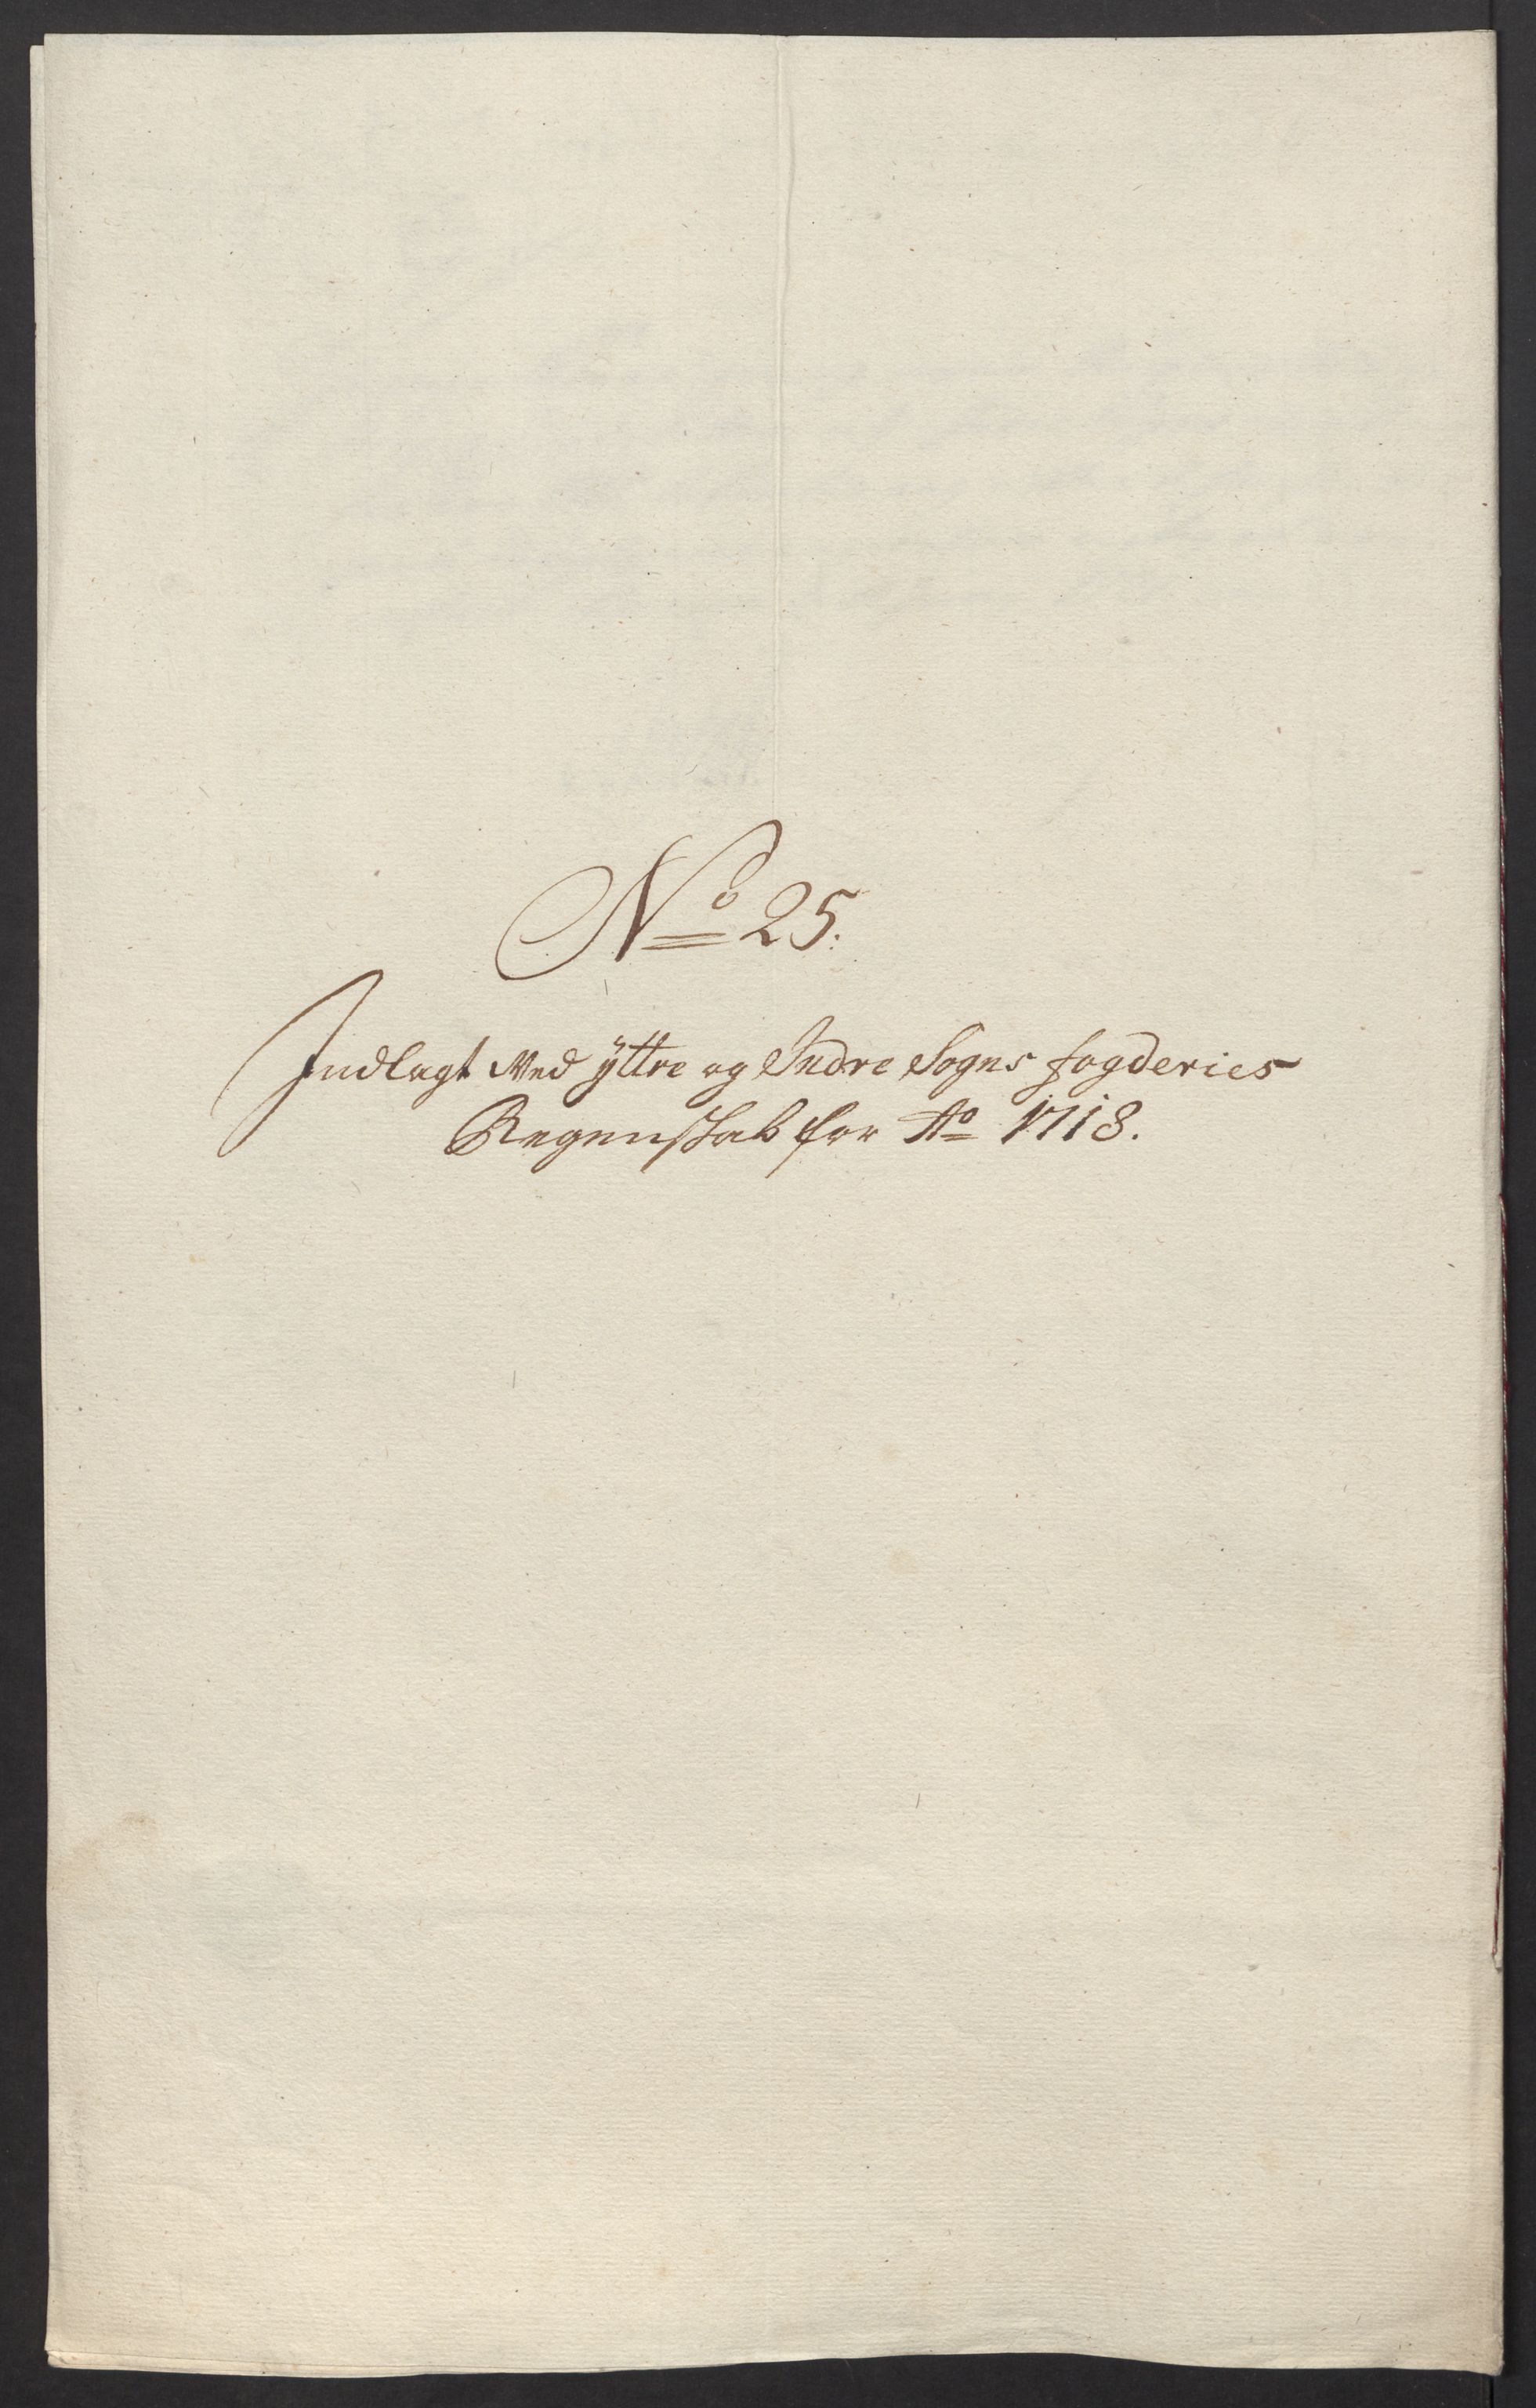 No 25.
Indlagt Med ÿttre og Indre Sogns fogderies
Regenskab for Ao 1718.